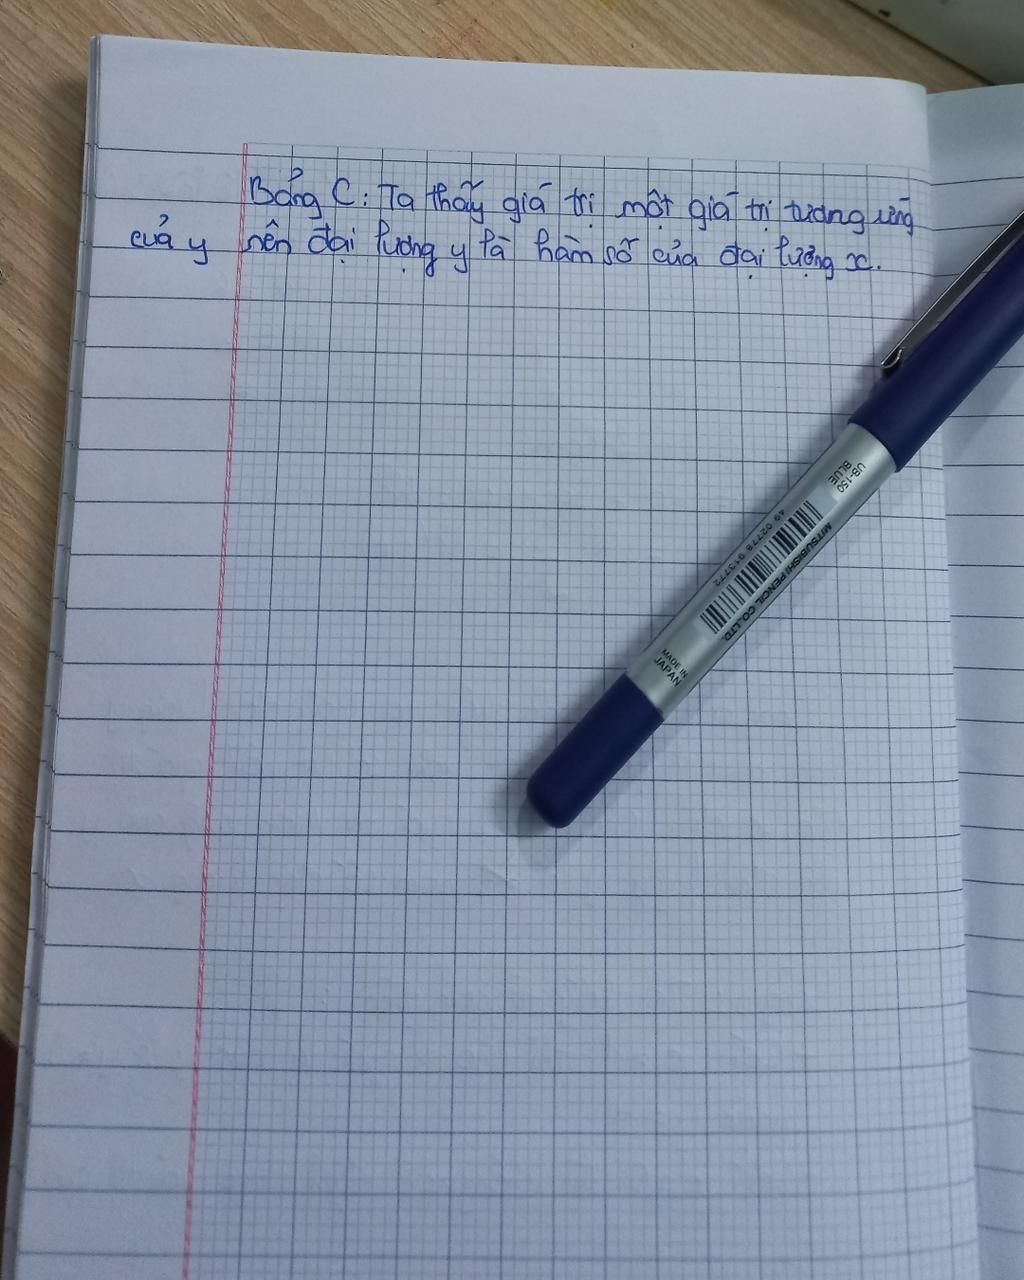 Bảng C: Ta thấy giá trị một giá trị tương ứng
của y nên đại lượng y là hàm số của đại lượng x.
UB-150
BLUE
49 02778 913772
MITSUBISHI PENCIL CO.,LTD.
MADE IN
JAPAN